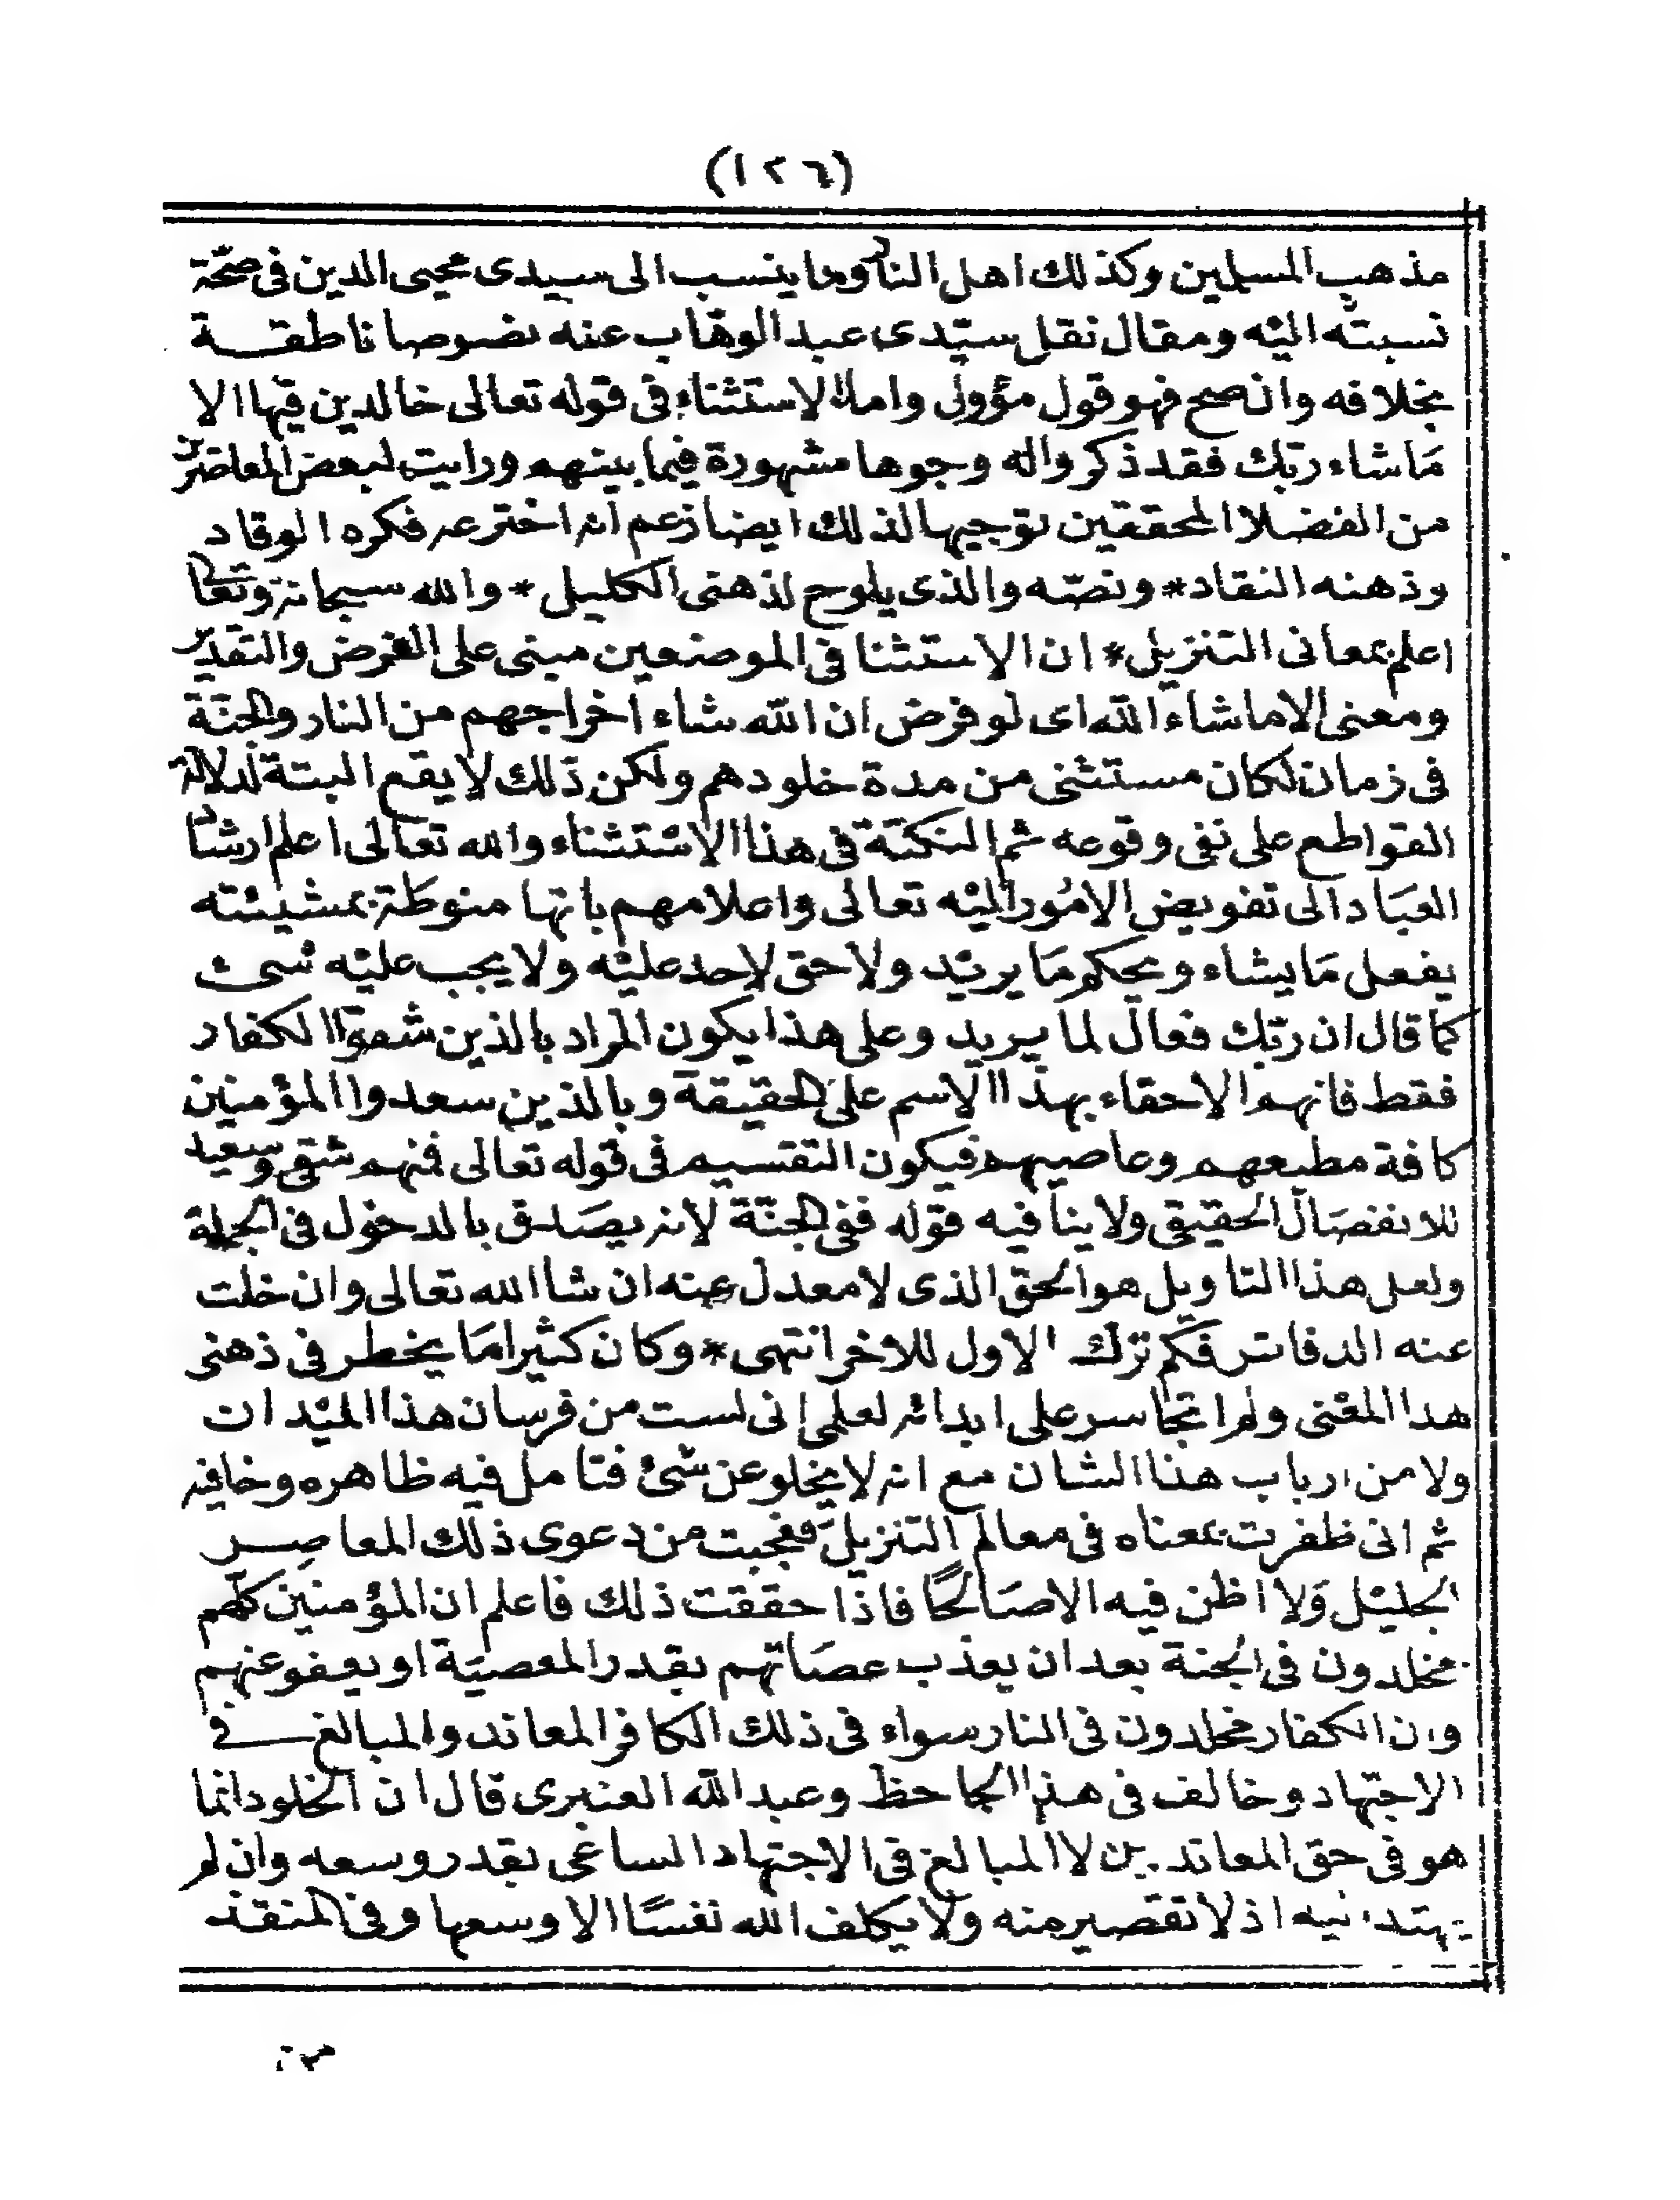 (١٢٦)
مذهب المسلمين وكذلك اهل النار وما ينسب الى سيدى محيى الدين فى صحّة
نسبته اليْه ومقال نقل سيّدى عبد الوهّاب عنه نصوصا ناطقة
بخلافه وان صح فهو قول مؤول واما الاستثناء فى قوله تعالى خالدين فيها الا
مَا شاء ربّك فقد ذكروا له وجوها مشهورة فيما بينهم ورايت لبعض المعاصرين
من الفضلا المحققين توجيها لذلك ايضا زعم انه اخترعه فكره الوقاد
وذهنه النقاد * ونصّه والذى يلوح لذهنى الكليل * والله سبحانه وتعالى
اعلم بمعانى التنزيل * ان الاستثنا فى الموضعين مبنى على الفرض والتقدير
ومعنى الا ما شاء الله اى لو فرض ان الله شاء اخراجهم من النار والجنّة
فى زمان لكان مستثنى من مدة خلودهم ولكن ذلك لا يقع البتة لدلالة
القواطع على نفى وقوعه ثم النكتة فى هذا الاسْتثناء والله تعالى اعلم ارشاد
العبَاد الى تفويض الامُور اليْه تعالى واعلامهم بانها منوطَة بمشيئته
يفعل مَا يشاء ويحكم مَا يريْد ولا حق لاحد عليْه ولا يجب عليْه شىء
كما قال ان ربّك فعال لما يريد وعلى هذا يكون المراد بالذين شقوا الكفار
فقط فانهم الاحقاء بهذا الاسم على الحقيقة وبالذين سعدوا المؤمنين
كافة مطيعهم وعاصيهم فيكون التقسيم فى قوله تعالى فمنهم شقى وسعيد
للانفصَال الحقيقى ولا ينافيه قوله ففى الجنّة لانه يصَدق بالدخول فى الجملة
ولعل هذا التاويل هو الحق الذى لا معدل عنه ان شا الله تعالى وان خلت
عنه الدفاتر فكم ترك الاول للاخر انتهى * وكان كثيرا مَا يخطر فى ذهنى
هذا المعْنى ولم اتجاسر على ابدائه لعلمى انى لست من فرسان هذا الميْدان
ولا من ارباب هذا الشان مع انه لا يخلو عن شئ فتامل فيه ظاهره وخافيه
ثم انى ظفرت بمعناه فى معالم التنزيل فعجبت من دعوى ذلك المعاصِر
الجليْل وَلا اظن فيه الا صَالحًا فاذا حققت ذلك فاعلم ان المؤمنين كلهم
مخلدون فى الجنة بعد ان يعذب عصَاتهم بقدر المعصيَة او يعفو عنهم
وان الكفار مخلدون فى النار سواء فى ذلك الكافر المعاند والمبالغ فى
الاجتهاد وخالف فى هذا الجاحظ وعبد الله العنبرى قال ان الخلود انما
هو فى حق المعاندين لا المبالغ فى الاجتهاد الساعى بقدر وسعه وان لم
يهتد اذ لا تقصير منه ولا يكلف الله نفسًا الا وسعها وفى المنقذ